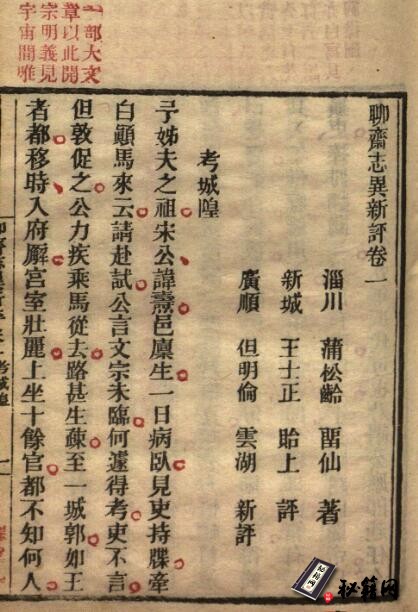 一部大文
章以此開
宗明義見
宇宙間唯
聊齋志異新評卷一
淄川 蒲松齡 畱仙 著
新城 王士正 貽上 評
廣順 但明倫 雲湖 新評
考城隍
予姊夫之祖宋公諱燾邑廩生一日病臥見吏持牒牽
白顚馬來云請赴試公言文宗未臨何遽得考吏不言
但敦促之公力疾乘馬從去路甚生疎至一城郭如王
者都移時入府廨宮室壯麗上坐十餘官都不知何人
考城隍
一
秘籍网